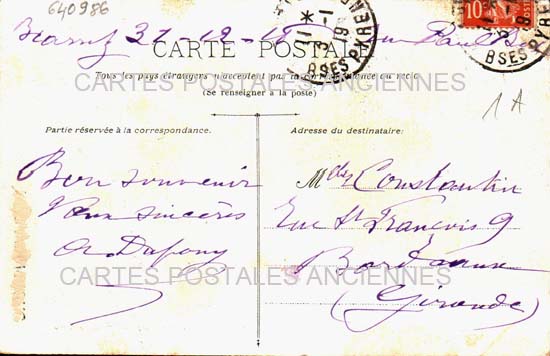 640986
Biarritz 31-12-18
CARTE POSTALE
Tous les pays étrangers n'acceptent pas la correspondance au recto
(Se renseigner à la poste)
CARTES POSTALES ANCIENNES
1A
Partie réservée à la correspondance.
Adresse du destinataire:
Bon souvenir
Vœux sincères
A Dufony
Mdlle Constantin
Rue St François 9
Bordeaux
(Gironde)
CARTES POSTALES ANCIENNES
BSES PYRENEES
10